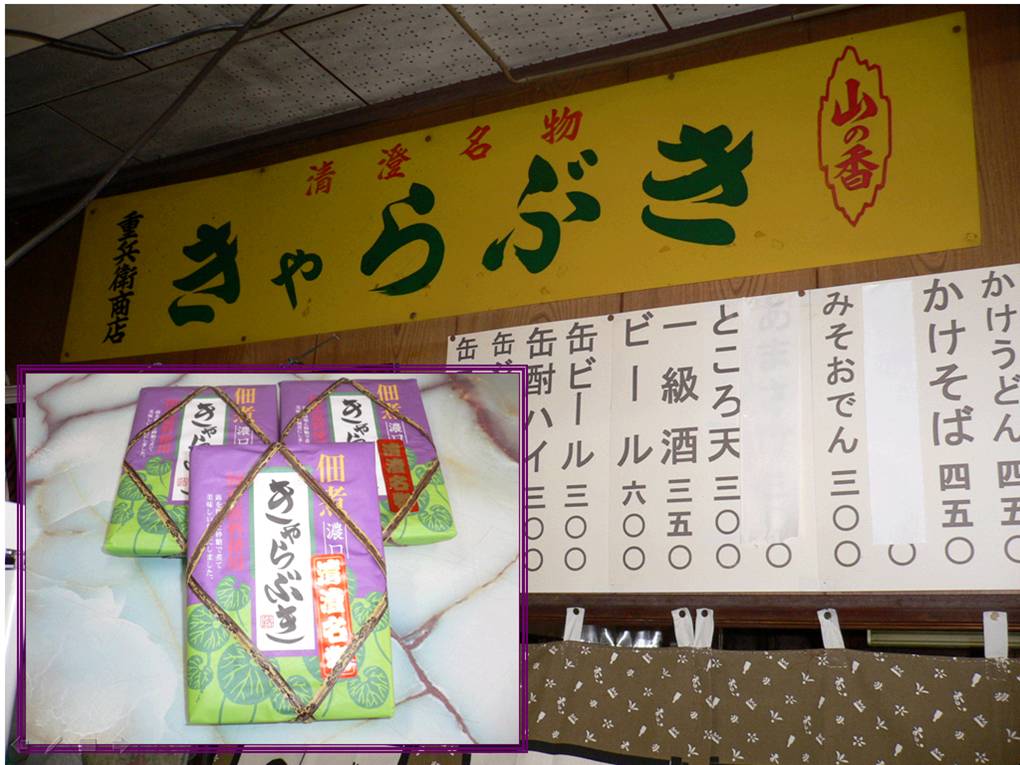 清澄名物
きゃらぶき
山の香
重兵衛商店
かけうどん 四五〇
かけそば 四五〇
みそおでん 三〇〇
ところ天 三〇〇
一級酒 三五〇
ビール 六〇〇
缶ビール 三〇〇
缶酎ハイ 三〇〇
缶
佃煮
濃口
きゃらぶき
清澄名物